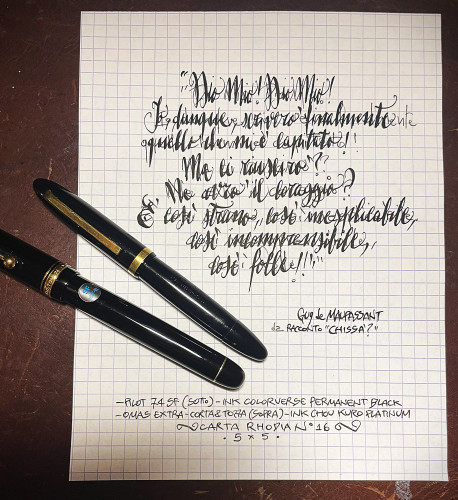 "Dio Mio! Dio Mio!
Io, dunque, scriverò finalmente
quello che mi è capitato!!
Ma ci riuscirò??
Ne avrò il coraggio?
E' così strano, così inesplicabile,
così incomprensibile,
così folle!!"
Guy de MAUPASSANT
da RACCONTO "CHISSÀ?"
-PILOT 74 SF (SOTTO)-INK COLORVERSE PERMANENT BLACK
-OMAS EXTRA-CORTA E TOZZA (SOPRA)-INK CHOU KURO PLATINUM
CARTA RHODIA N° 16
• 5 x 5 •